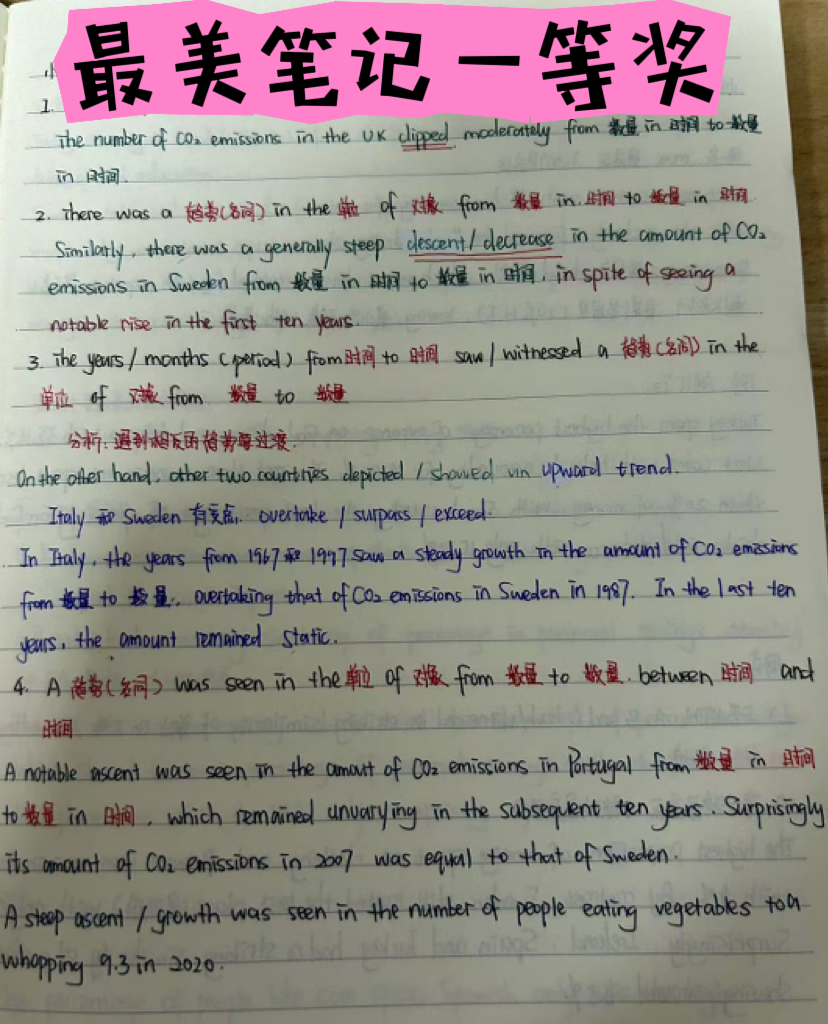 最美笔记一等奖
1.
The number of CO₂ emissions in the UK clipped moderately from 数量 in 时间 to 数量
in 时间.
2. There was a 趋势(名词) in the 单位 of 对象 from 数量 in 时间 to 数量 in 时间
Similarly, there was a generally steep descent/decrease in the amount of CO₂
emissions in Sweden from 数量 in 时间 to 数量 in 时间, in spite of seeing a
notable rise in the first ten years.
3. The years/months (period) from 时间 to 时间 saw/witnessed a 趋势(名词) in the
单位 of 对象 from 数量 to 数量
分析: 遇到相反的趋势要过渡.
On the other hand, other two countries depicted / showed un upward trend.
Italy 和 Sweden 有交点, overtake / surpass / exceed.
In Italy, the years from 1967 和 1997 saw a steady growth in the amount of CO₂ emissions
from 数量 to 数量, overtaking that of CO₂ emissions in Sweden in 1987. In the last ten
years, the amount remained static.
4. A 趋势(名词) was seen in the 单位 of 对象 from 数量 to 数量. between 时间 and
时间
A notable ascent was seen in the amout of CO₂ emissions in Portugal from 数量 in 时间
to 数量 in 时间, which remained unvarying in the subsequent ten years. Surprisingly
its amount of CO₂ emissions in 2007 was equal to that of Sweden.
A steep ascent / growth was seen in the number of people eating vegetables to a
whopping 9.3 in 2020.